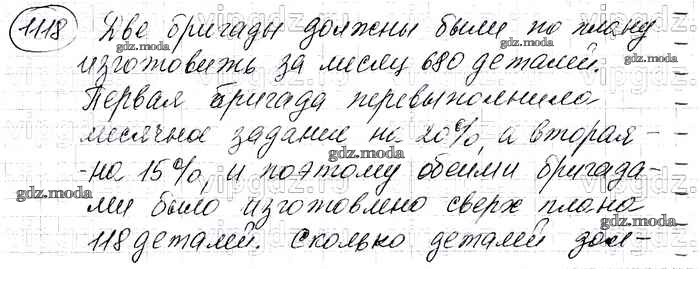 1118 Две бригады должны были по плану
изготовить за месяц 680 деталей.
Первая бригада перевыполнила
месячное задание на 20%, а вторая -
-на 15%, и поэтому обеими бригада-
ми было изготовлено сверх плана
118 деталей. Сколько деталей дол-